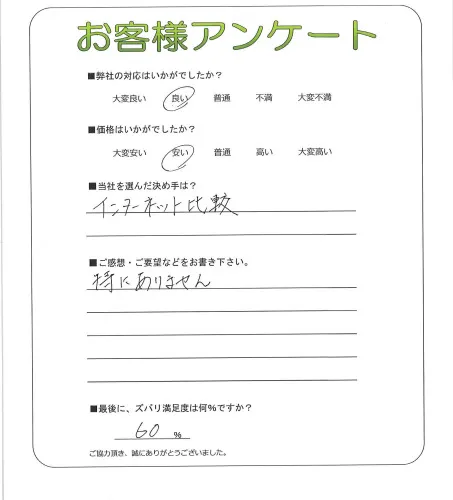 お客様アンケート
■弊社の対応はいかがでしたか？
大変良い 良い 普通 不満 大変不満
■価格はいかがでしたか？
大変安い 安い 普通 高い 大変高い
■当社を選んだ決め手は？
インターネット比較
■ご感想・ご要望などをお書き下さい。
特にありません
■最後に、ズバリ満足度は何％ですか？
60 ％
ご協力頂き、誠にありがとうございました。